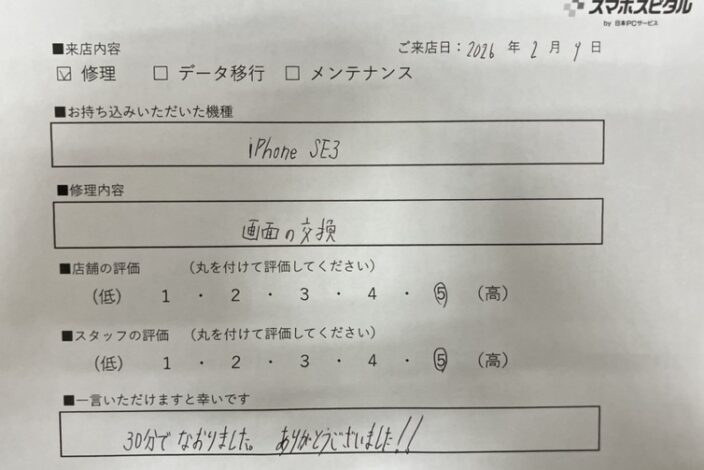 スマホスピタル
by 日本PCサービス
■来店内容 ご来店日：2026 年 2 月 9 日
☑ 修理 □ データ移行 □ メンテナンス
■お持ち込みいただいた機種
iPhone SE3
■修理内容
画面の交換
■店舗の評価 （丸を付けて評価してください）
（低） 1 ・ 2 ・ 3 ・ 4 ・ 5 （高）
■スタッフの評価 （丸を付けて評価してください）
（低） 1 ・ 2 ・ 3 ・ 4 ・ 5 （高）
■一言いただけますと幸いです
30分でなおりました。 ありがとうございました!!